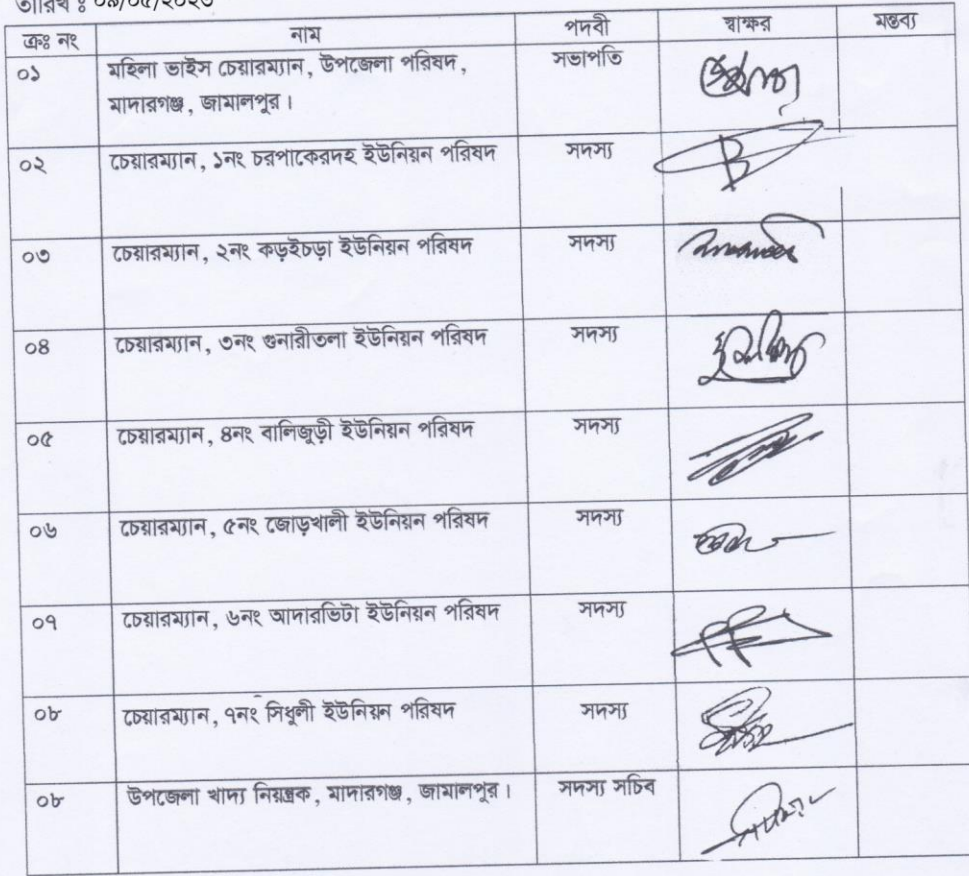 তারিখ ঃ ০৯/০৫/২০২৩
ক্রঃ নং নাম পদবী স্বাক্ষর মন্তব্য
০১ মহিলা ভাইস চেয়ারম্যান, উপজেলা পরিষদ, সভাপতি
মাদারগঞ্জ, জামালপুর।
০২ চেয়ারম্যান, ১নং চরপাকেরদহ ইউনিয়ন পরিষদ সদস্য
০৩ চেয়ারম্যান, ২নং কড়ইচড়া ইউনিয়ন পরিষদ সদস্য
০৪ চেয়ারম্যান, ৩নং গুনারীতলা ইউনিয়ন পরিষদ সদস্য
০৫ চেয়ারম্যান, ৪নং বালিজুড়ী ইউনিয়ন পরিষদ সদস্য
০৬ চেয়ারম্যান, ৫নং জোড়খালী ইউনিয়ন পরিষদ সদস্য
০৭ চেয়ারম্যান, ৬নং আদারভিটা ইউনিয়ন পরিষদ সদস্য
০৮ চেয়ারম্যান, ৭নং সিধুলী ইউনিয়ন পরিষদ সদস্য
০৮ উপজেলা খাদ্য নিয়ন্ত্রক, মাদারগঞ্জ, জামালপুর। সদস্য সচিব